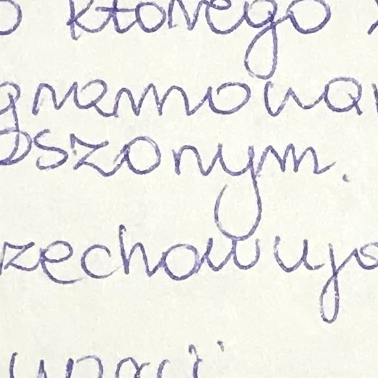 o którego
gramowan
oszonym.
zechowują